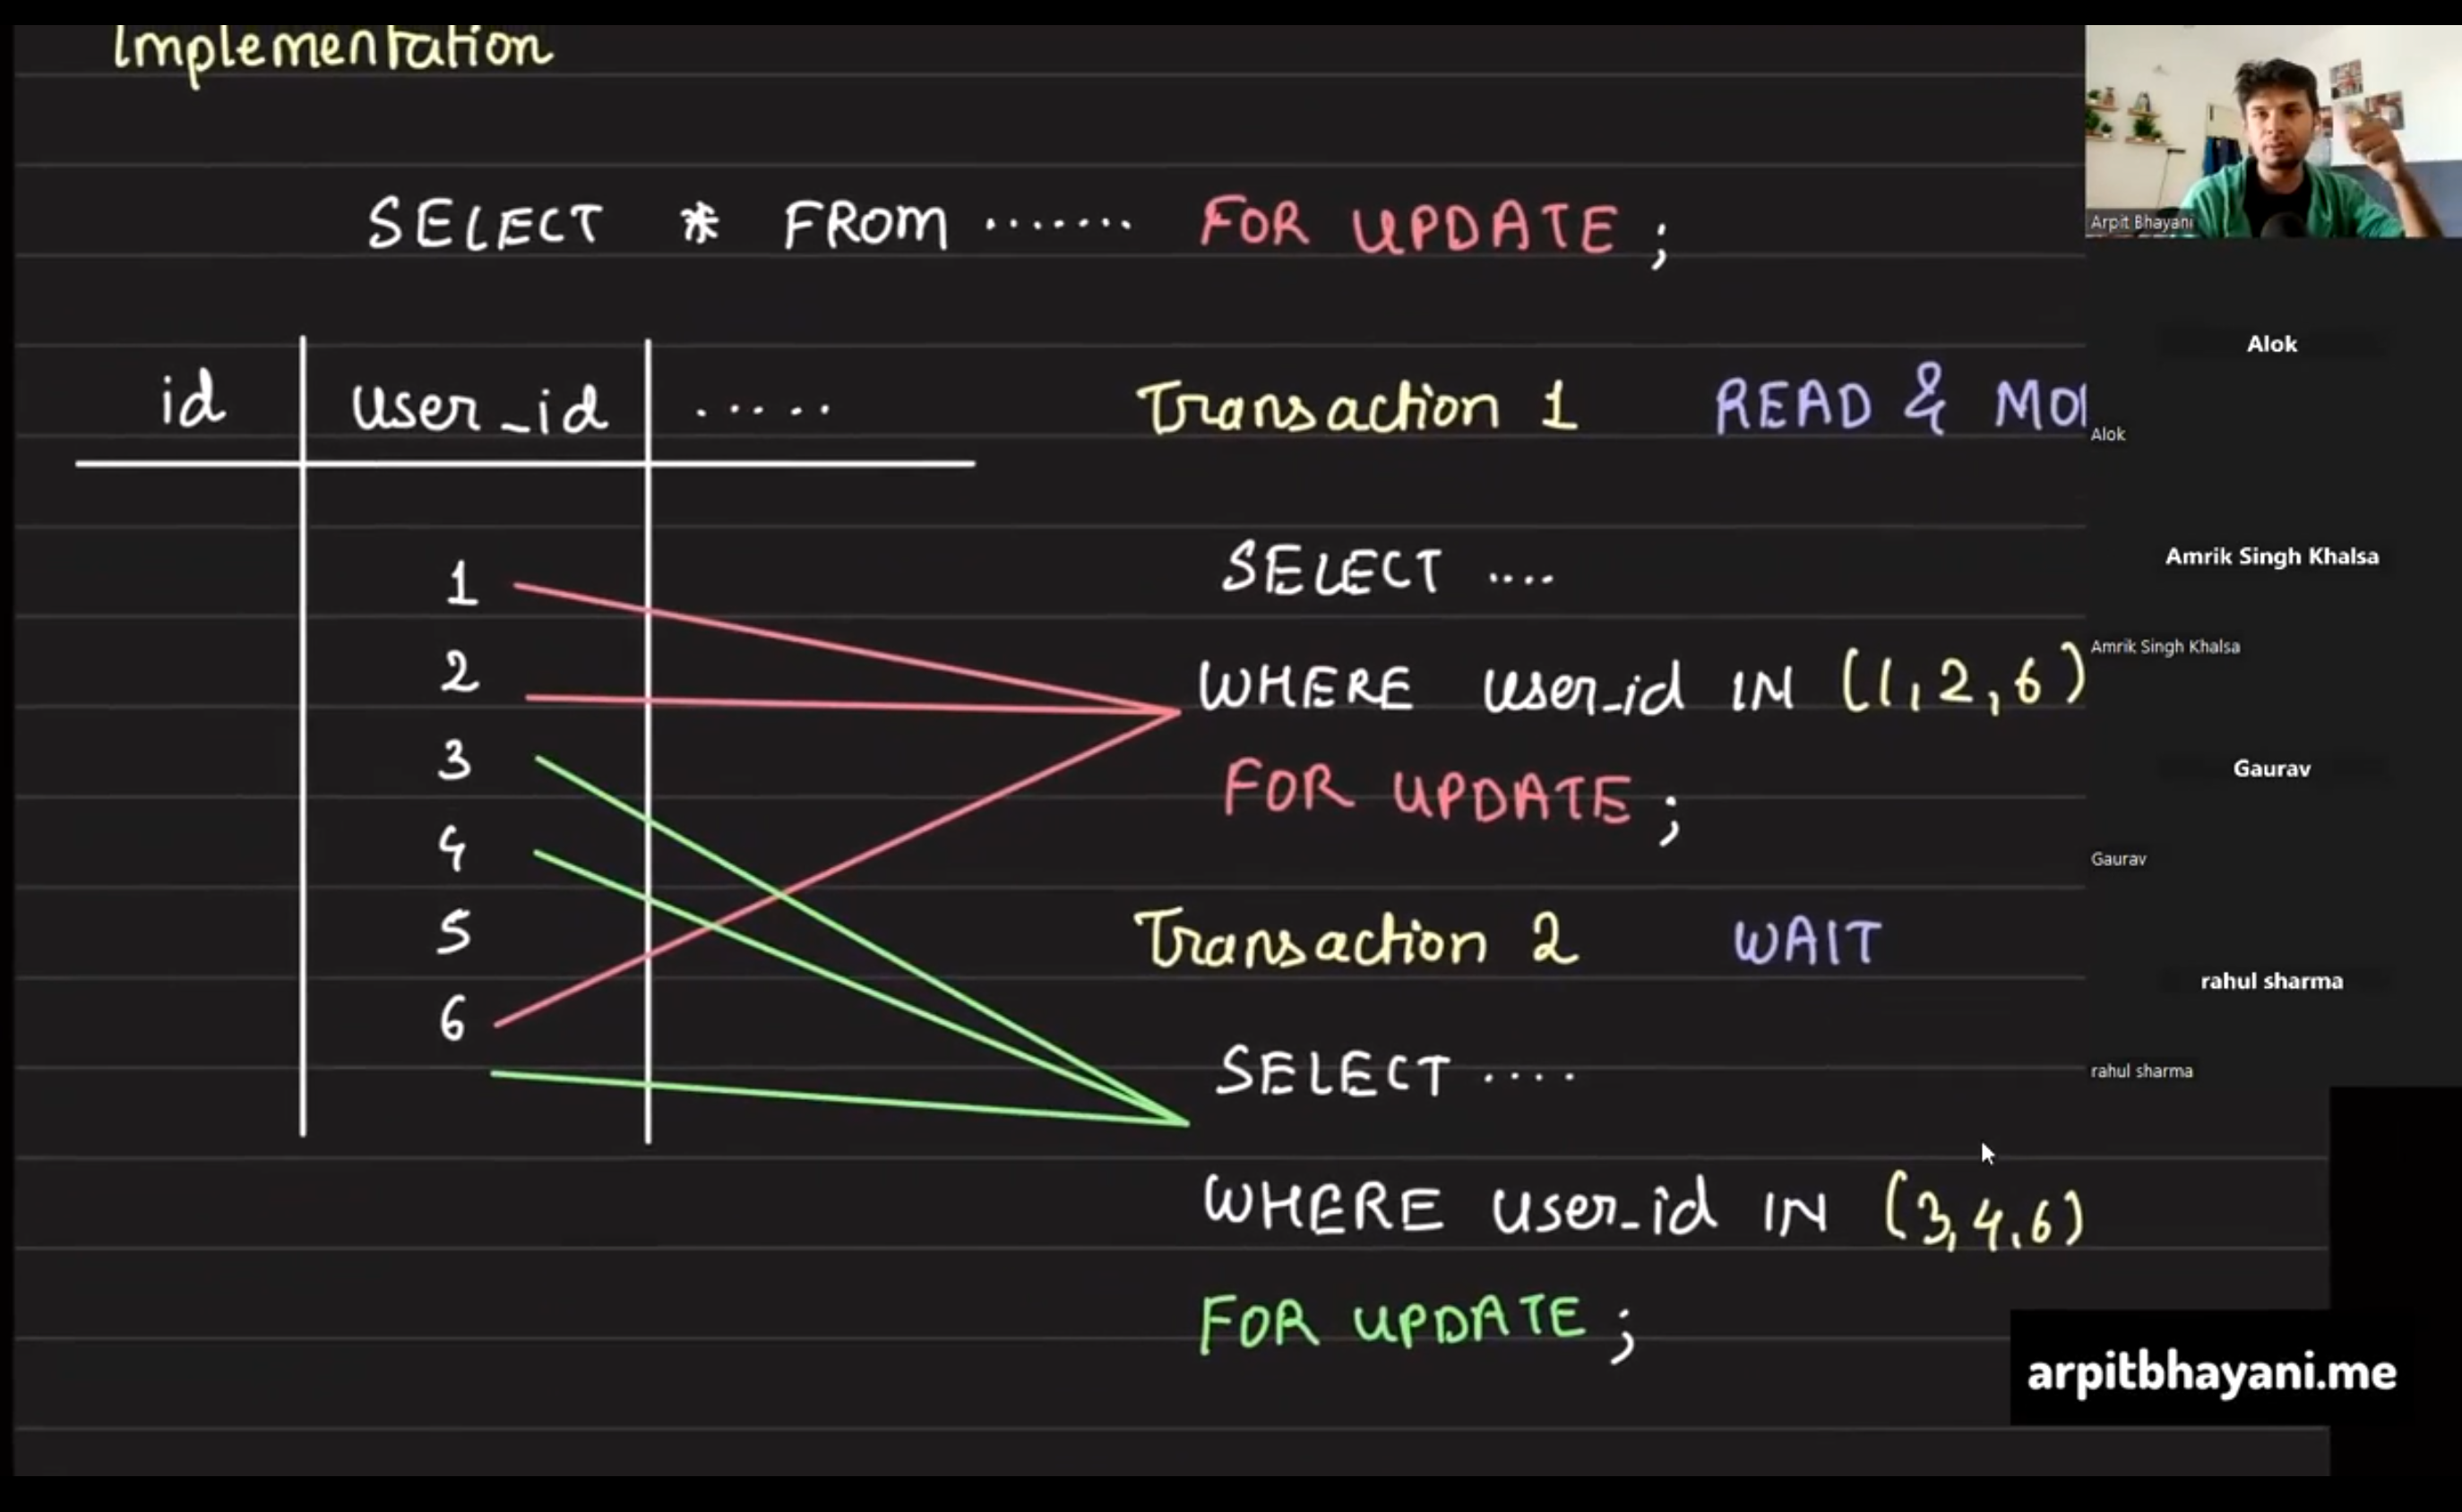 Implementation
SELECT * FROM ....... FOR UPDATE ;
id user_id .....
Transaction 1 READ & MO
1
2
3
4
5
6
SELECT ....
WHERE user_id IN (1,2,6)
FOR UPDATE ;
Transaction 2 WAIT
SELECT ....
WHERE user_id IN (3,4,6)
FOR UPDATE ;
Arpit Bhayani
Alok
Alok
Amrik Singh Khalsa
Amrik Singh Khalsa
Gaurav
Gaurav
rahul sharma
rahul sharma
arpitbhayani.me